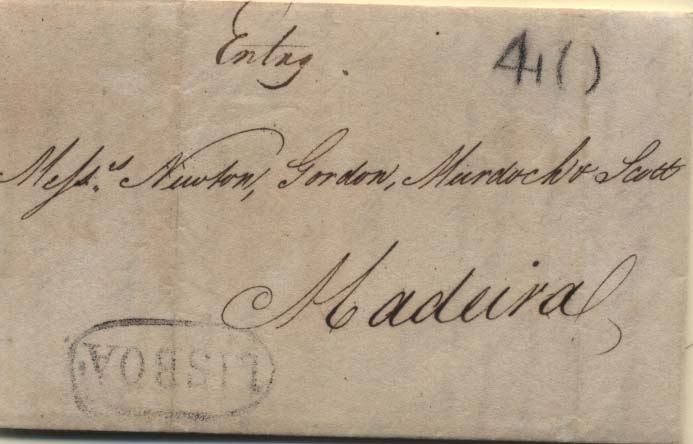 Entrg.
40
Messrs. Newton, Gordon, Murdoch & Scott
Madeira
LISBOA